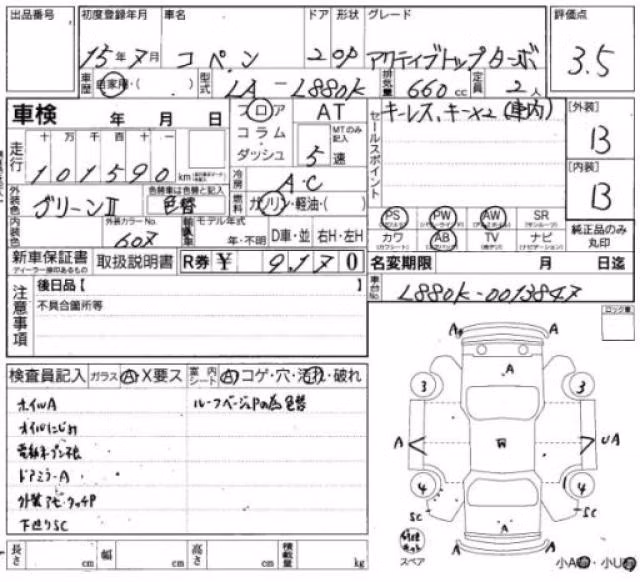 出品番号 初度登録年月 車名 ドア 形状 グレード 評価点
15年7月 コペン 2 OP アクティブトップターボ 3.5
車歴 自家用・( ) 型式 LA-L880K 排気量 660cc 定員 2人
車検 年 月 日 フロア コラム ダッシュ AT MTのみ記入 5速
セールスポイント キーレス、キー×2(車内)
[外装] B
走行 十 万 千 百 十 一
101590 km
冷房 A・C
[内装] B
外装色 グリーンⅡ 色替車は色替と記入 色替 燃料 ガソリン・軽油・( )
外装カラーNo. 607 モデル年式 年・不明 D車・並 右H・左H
PS PW AW SR
カワ AB TV ナビ
純正品のみ丸印
新車保証書 ディーラー捺印あるもの 取扱説明書 R券 ¥ 9,170
名変期限 月 日迄
注意事項 後日品【 】
不具合箇所等
車台No. L880K-0013847
ロック車
検査員記入 ガラス A・X要ス 室内シート A コゲ・穴・汚れ・破れ
ホイルA
オイルにじみ
電動オープン不良
ドアミラーA
外装アセ・タッチP
下廻りSC
ルーフベージュPの為色替
A A
A
3 3
A UA
4 4
SC SC
A
A A
スペア
小A・小U
長さ cm 幅 cm 高さ cm 積載量 kg